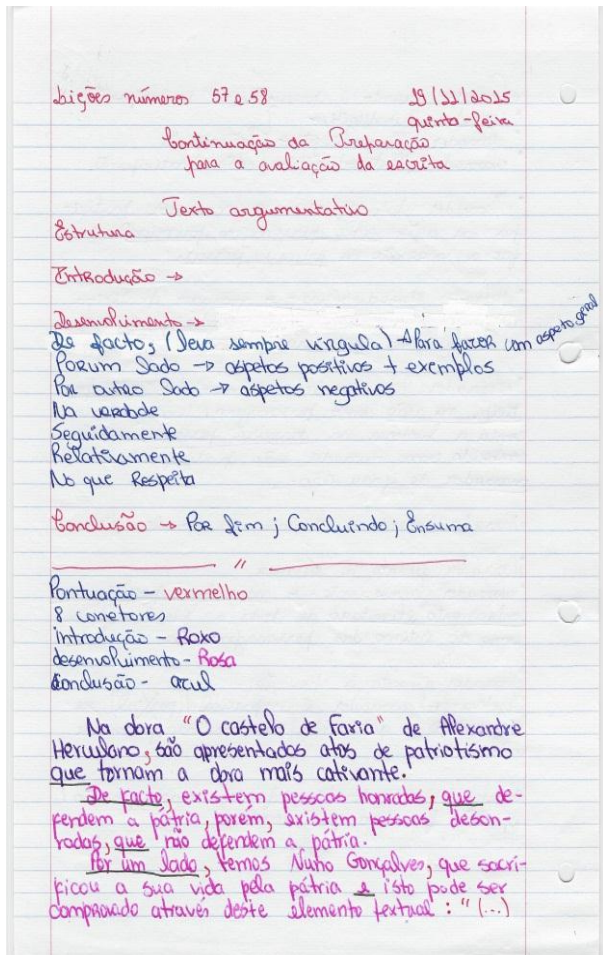 Lições números 57 e 58 19/11/2015
quinta-feira
Continuação da Preparação
para a avaliação da escrita
Texto argumentativo
Estrutura
Introdução →
Desenvolvimento →
De facto, (leva sempre vírgula) → Para fazer com aspeto geral
Por um lado → aspetos positivos + exemplos
Por outro lado → aspetos negativos
Na verdade
Seguidamente
Relativamente
No que Respeita
Conclusão → Por fim ; Concluindo ; Ensuma
//
Pontuação - vermelho
8 conetores
introdução - Roxo
desenvolvimento - Rosa
conclusão - azul
Na obra "O castelo de Faria" de Alexandre
Herculano, são apresentados atos de patriotismo
que tornam a obra mais cativante.
De facto, existem pessoas honradas, que de-
fendem a pátria, porém, existem pessoas deson-
radas, que não defendem a pátria.
Por um lado, temos Nuno Gonçalves, que sacri-
ficou a sua vida pela pátria e isto pode ser
comprovado através deste elemento textual : " (...)